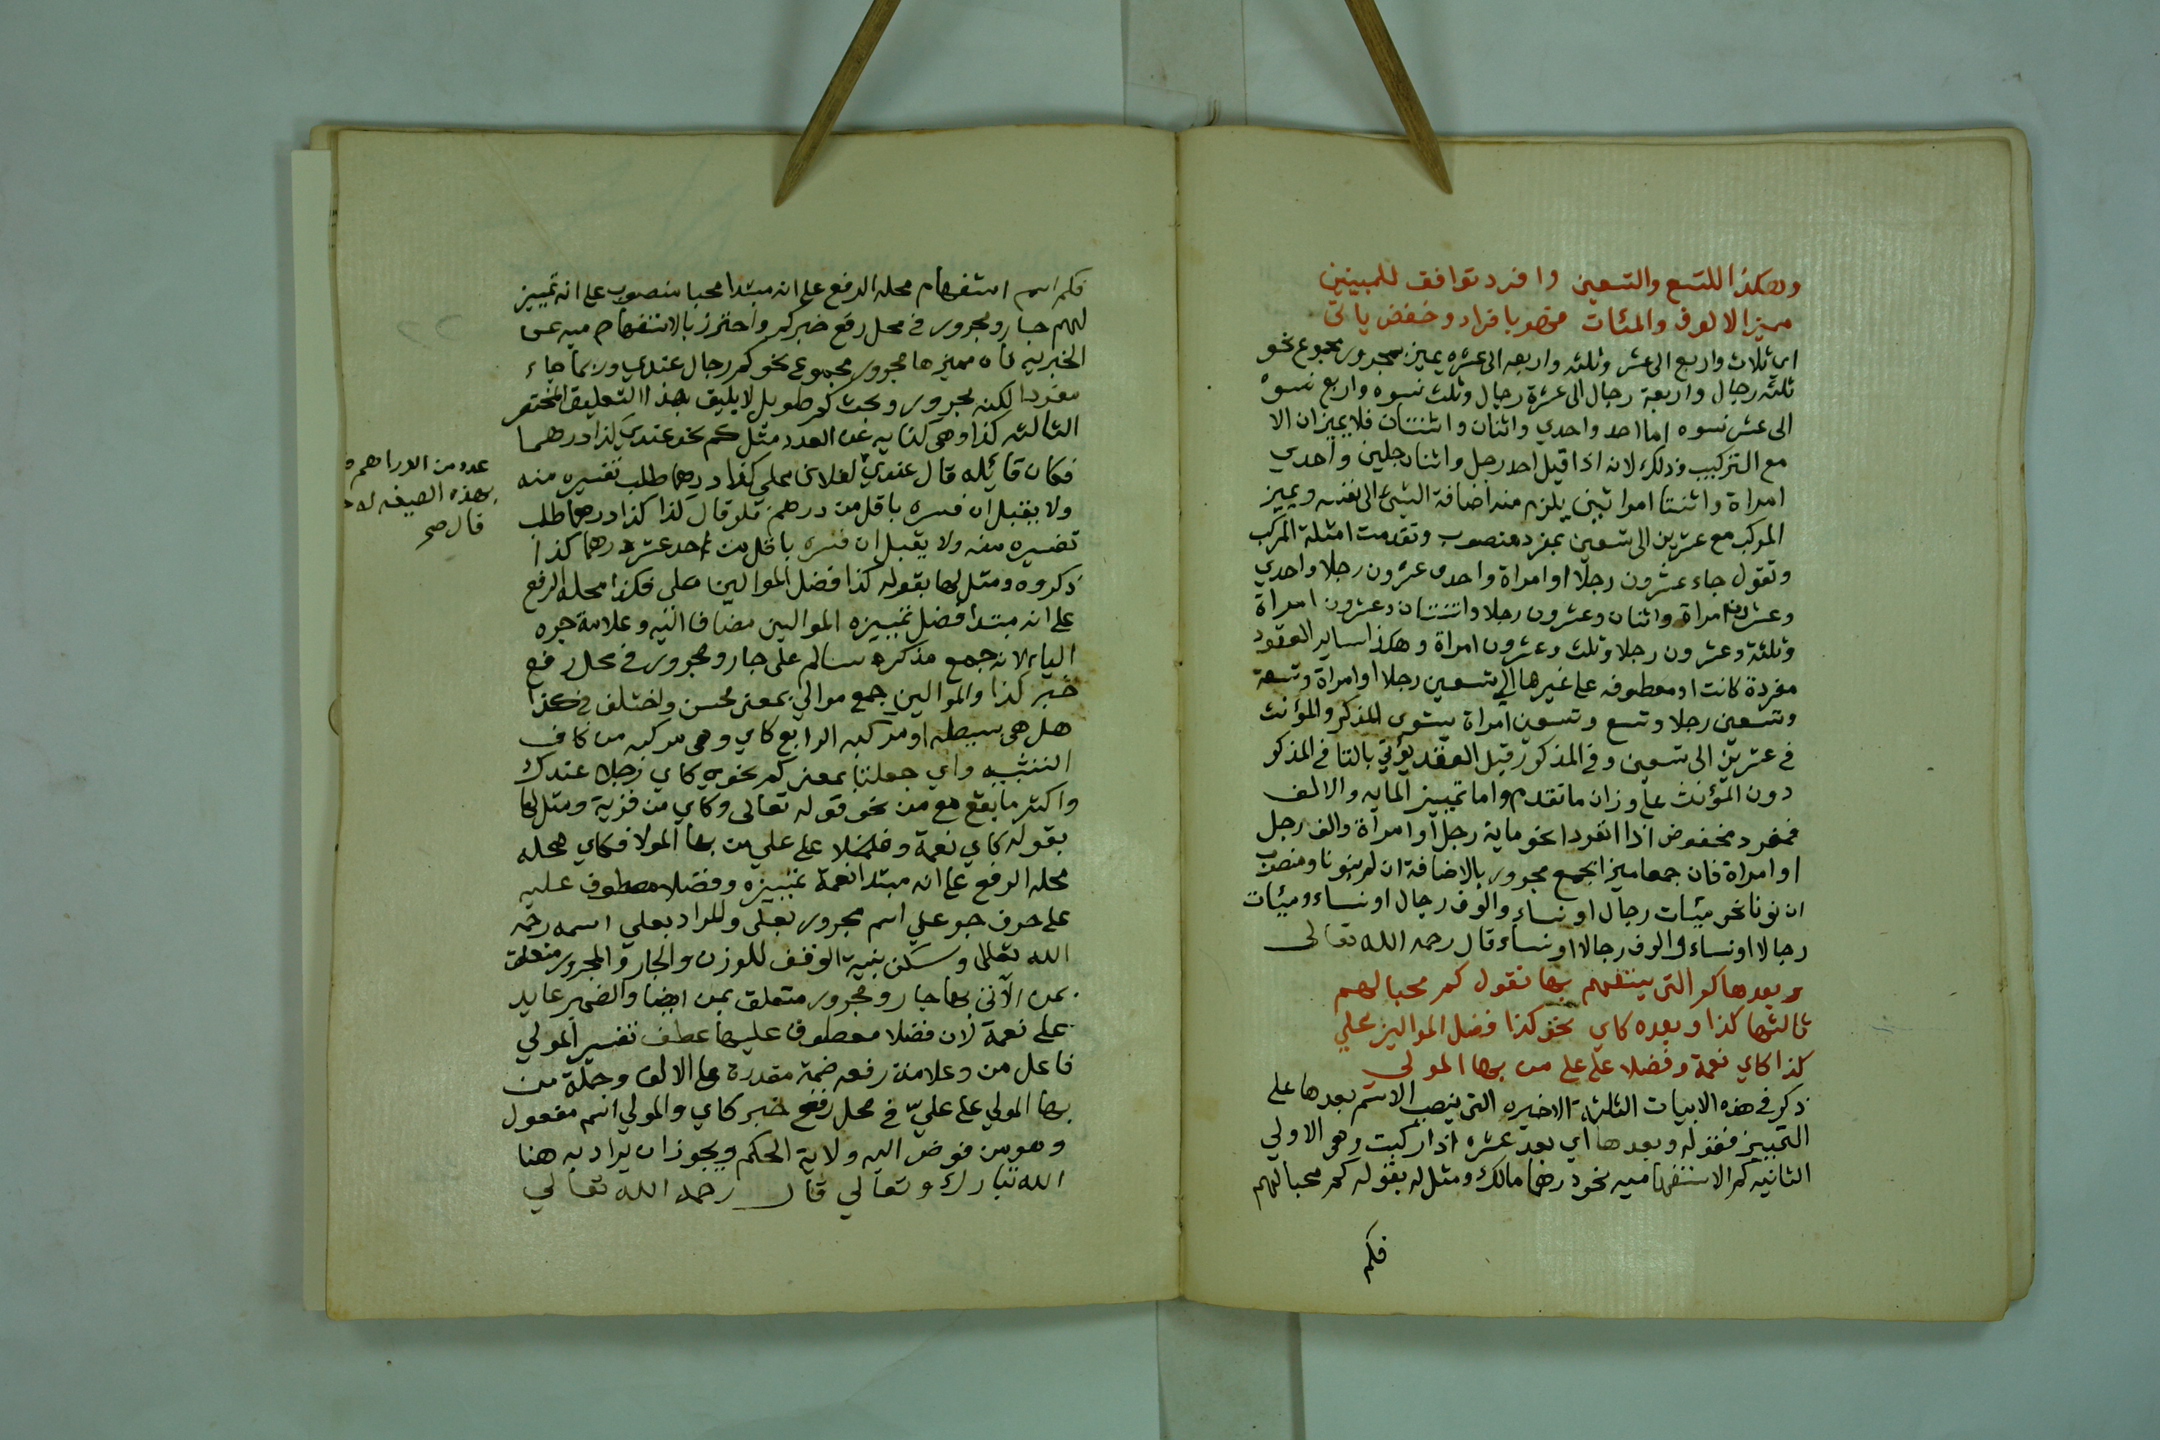 وهكذا للتسع والتسعين وافرد توافق للمبينين
مميز الالوف والمئات مخصوبافراد وخفض ياتى
اى ثلاث واربع الى عشر وثلثه واربعه الى عشره يميز بمجرور مجموع نحو
ثلثه رجال واربعة رجال الى عشرة رجال وثلث نسوه واربع نسوه
الى عشر نسوه اما احد واحدي واثنان واثنتان فلا يميزان الا
مع التركيب وذلك لانه اذا قيل احد رجل واثنا رجلين واحدي
امراة واثنتا امراتين يلزم منه اضافة الشئ الى نفسه ويميز
المركب مع عشرين الى تسعين بمفرد منصوب وتقدمت امثلة المركب
وتقول جاء عشرون رجلا او امراة واحدى عشرون رجلا واحدي
وعشرون امراة واثنان وعشرون رجلا واثنتان وعشرون امراة
وثلثة وعشرون رجلا وثلث وعشرون امراة وهكذا ساير العقود
مفردة كانت او معطوفه على غيرها الى تسعين رجلا او امراة وتسعة
وتسعين رجلا وتسع وتسعين امراة يستوى المذكر والمؤنث
فى عشرين الى تسعين وفى المذكور قبل العقد يؤتى بالتا فى المذكر
دون المؤنث على وزان ما تقدم واما تمييز المايه والالف
فمفرد مخفوض اذا انفردا نحو ماية رجل او امراة والف رجل
او امراة فان جمعا ميزا بجمع مجرور بالاضافة ان لم ينونا ومنصوب
ان نونا نحو مئيات رجال او نساء والوف رجال او نساء ومئيات
رجالا او نساء والوف رجالا او نساء قال رحمه الله تعالى
وبعدها كم التى يستفهم بها تقول كم محبا لهم
ثالثها كذا وبعده كاي نحو كذا فضل الموالين علي
كذا كاي نعمة وفضلا على على من بها المولى
ذكر فى هذه الابيات الثلثة الاخيره التى ينصب الاسم بعدها على
التمييز فقوله وبعدها اي بعد عشره اذا ركبت وهى الاولي
الثانيه كم الاستفهاميه نحو درهما مالك ومثل له بقوله كم محبا لهم
فكم
فكم اسم استفهام محله الرفع على انه مبتدا محبا منصوب على انه تمييز
لهم جار ومجرور فى محل رفع خبر كم واحترز بالاستفهاميه عن
الخبريه فان مميزها مجرور مجموع نحو كم رجال عندي وربما جاء
مفردا لكنه مجرور وبحث كم طويل لا يليق بهذا التعليق المختصر
الثالثه كذا وهى كنايه عن العدد مثل كم نحو عندي كذا درهما
فكان قائله قال عندي لفلان على كذا درهما طلب تفسيره منه
ولا يقبل ان فسره باقل من درهم فلو قال كذا كذا درهما طلب
تفسيره منه ولا يقبل ان فسره باقل من احد عشر درهما كذا
ذكروه ومثل لها بقوله كذا فضل الموالين على فكذا محله الرفع
على انه مبتدا فضل تمييزه الموالين مضافا اليه وعلامة جره
الياء لانه جمع مذكر سالم على جار ومجرور فى محل رفع
خبر كذا والموالين جمع موالي بمعنى محسن واختلف فى كذا
هل هى بسيطه او مركبه الرابع كاي وهى مركبه من كاف
التشبيه واي جعلتا بمعنى كم نحويه كاي رجلا عندك
واكثر ما يقع مع من نحو قوله تعالى وكاي من قرية ومثل لها
بقوله كاي نعمة وفضلا على علي من بها المولا فكاي محله
محله الرفع على انه مبتدا نعمة تمييزه وفضلا معطوف عليه
على حرف جر علي اسم مجرور بعلى والمراد بعلي اسمه رحمه
الله تعالى وسكن بنية الوقف للوزن والجار والمجرور متعلق
بمن الآتى بها جار ومجرور متعلق بمن ايضا والضمير عايد
على نعمة لان فضلا معطوف عليها عطف تفسير المولي
فاعل من وعلامة رفعه ضمة مقدرة على الالف وجملة من
بها المولي على عليّ فى محل رفع خبر كاي والمولي اسم مفعول
وهو من فوض اليه ولاية الحكم ويجوز ان يراد به هنا
الله تبارك وتعالي قال رحمه الله تعالي
عدد من الدراهم
بهذه الصيغه
قال صح